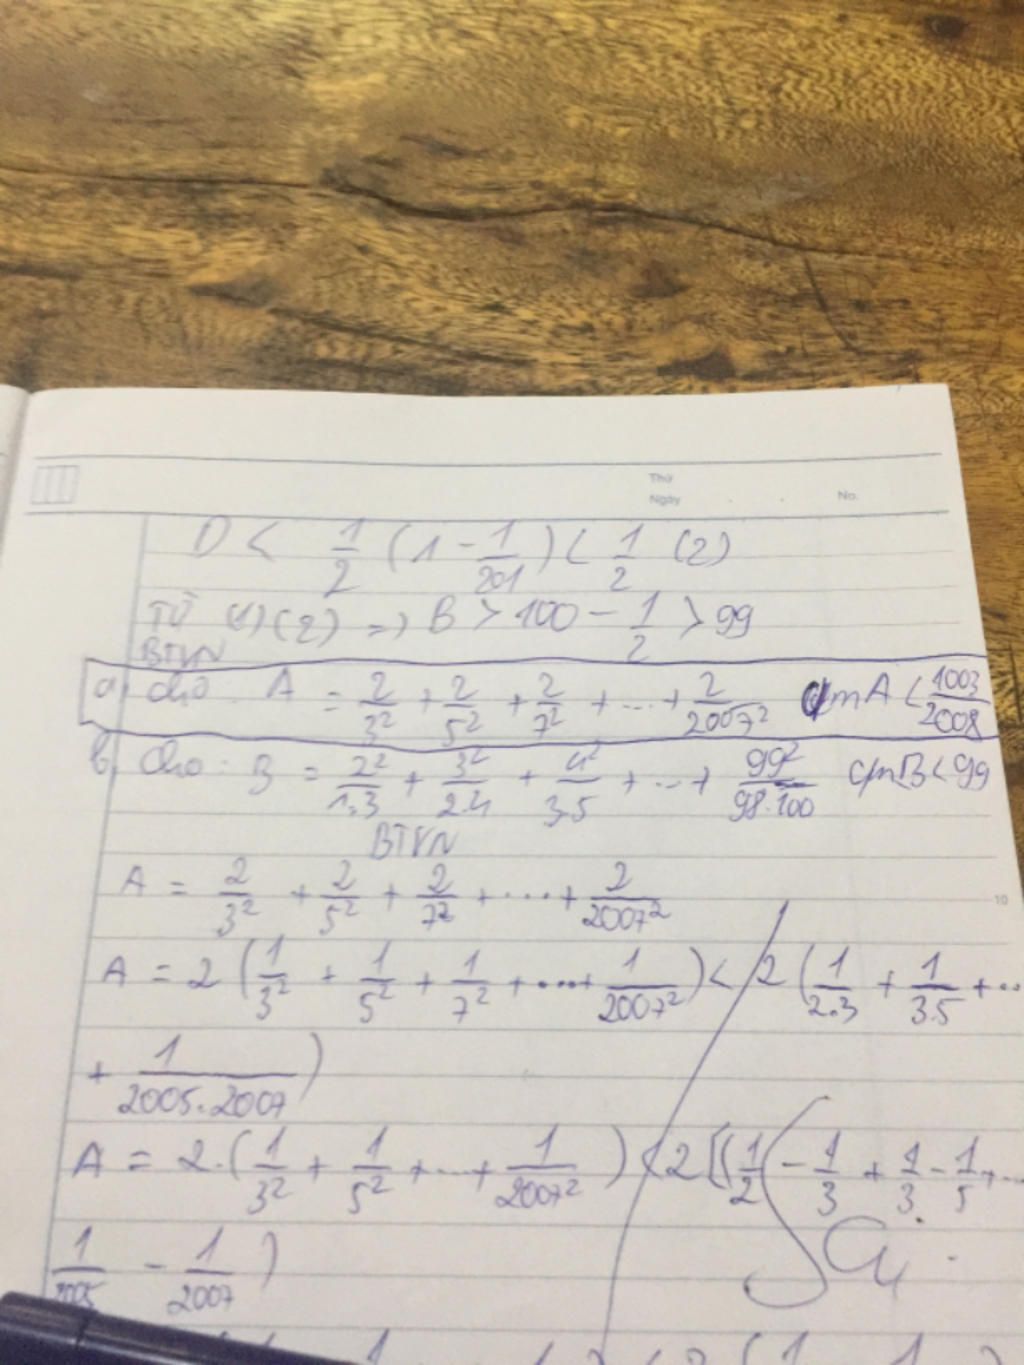 Thứ
Ngày No.
D < 1/2 (1 - 1/201) < 1/2 (2)
Từ (1)(2) => B > 100 - 1/2 > 99
BTVN
a, Cho A = 2/3² + 2/5² + 2/7² + ... + 2/2007² cm A < 1003/2008
b, Cho: B = 2²/1.3 + 3²/2.4 + 4²/3.5 + ... + 99²/98.100 cm B < 99
BTVN
A = 2/3² + 2/5² + 2/7² + .... + 2/2007²
10
A = 2 (1/3² + 1/5² + 1/7² + .... + 1/2007²) < 2 (1/2.3 + 1/3.5 + ..
+ 1/2005.2007)
A = 2.(1/3² + 1/5² + ... + 1/2007²) < 2 [(1/2 - 1/3 + 1/3 - 1/5 + ..
1/2005 - 1/2007)